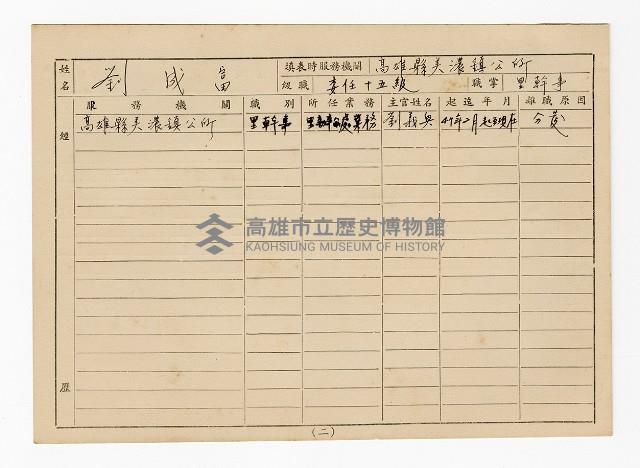 姓名 劉成富 填表時服務機關 高雄縣美濃鎮公所
級職 委任十五級 職掌 里幹事
服務機關 職別 所任業務 主官姓名 起迄年月 離職原因
高雄縣美濃鎮公所 里幹事 業務 劉義興
經歷
高雄市立歷史博物館
KAOHSIUNG MUSEUM OF HISTORY
(二)